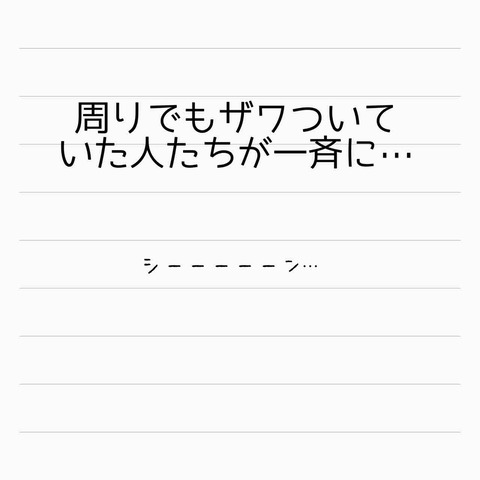 周りでもザワついて
いた人たちが一斉に…
シーーーーーン…